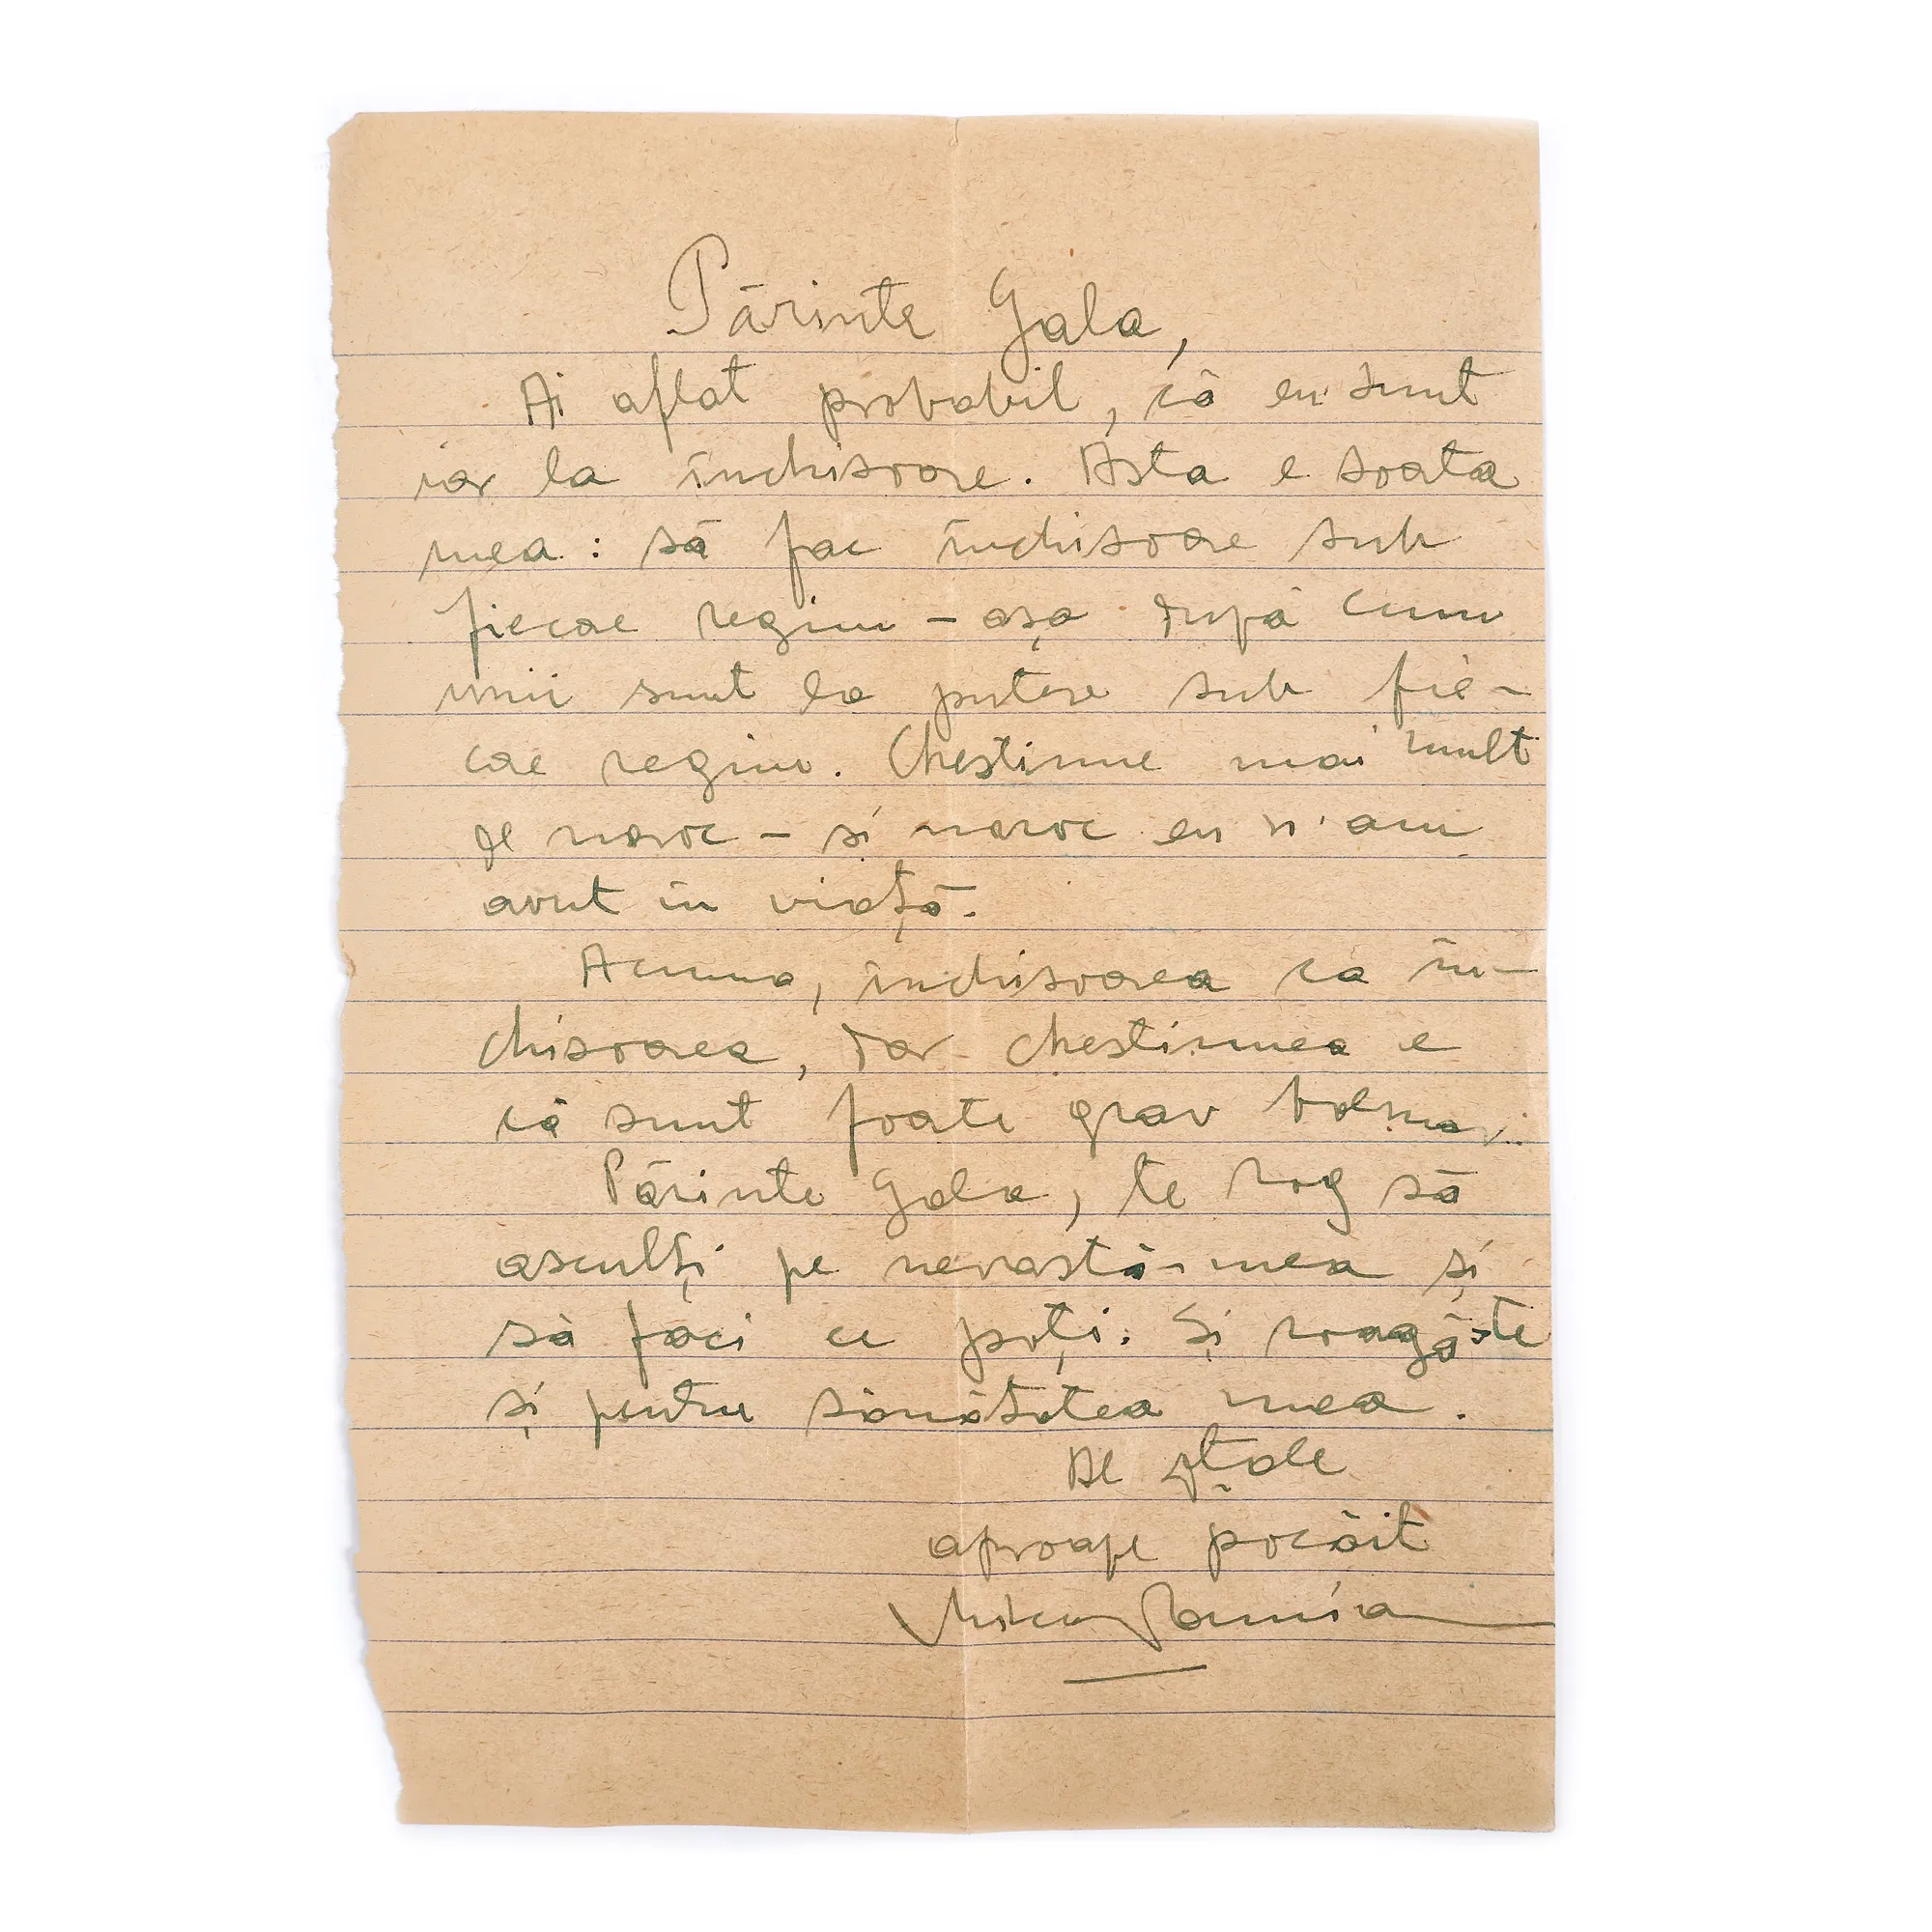 Părinte Gala,
Ai aflat probabil, că eu sunt
iar la închisoare. Asta e soarta
mea: să fac închisoare sub
fiecare regim - așa după cum
unii sunt la putere sub fie-
care regim. Chestiune mai mult
de noroc - și noroc eu n'am
avut în viață.
Acuma, închisoarea ca în-
chisoarea, dar chestiunea e
că sunt foarte grav bolnav.
Părinte Gala, te rog să
asculți pe nevastă-mea și
să faci ce poți. Și roagă-te
și pentru sănătatea mea.
Al
aproape pocăit